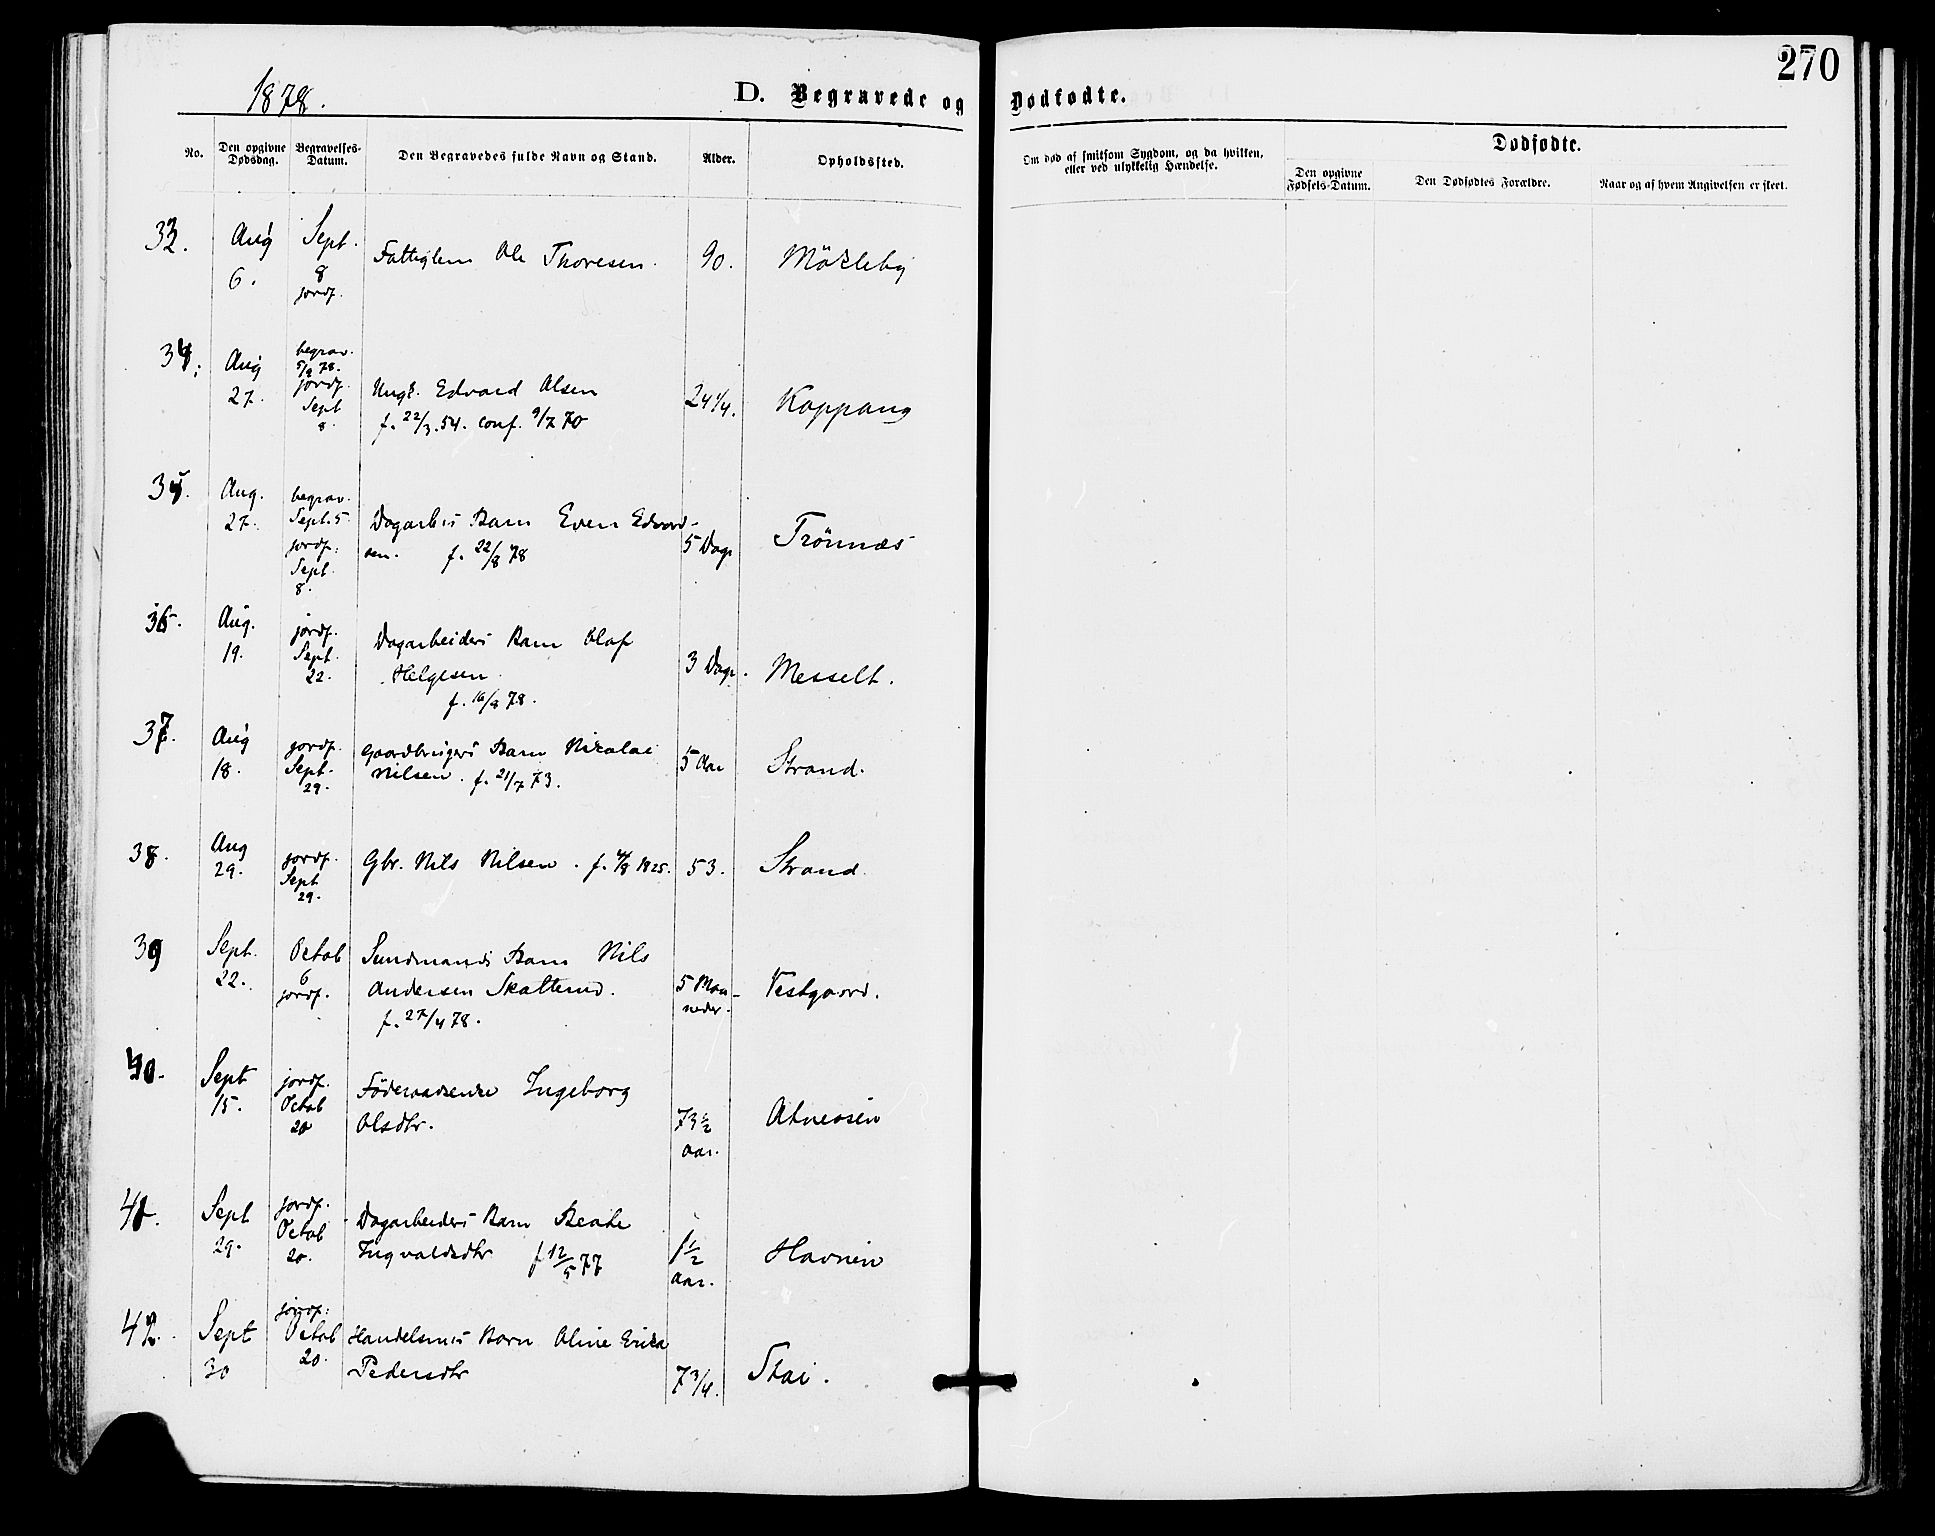 270
1878.
D. Begravede og Dødfødte.
No.
Den opgivne Dødsdag.
Begravelses-Datum.
Den Begravedes fulde Navn og Stand.
Alder.
Opholdssted.
Om død af smitsom Sygdom, og da hvilken,
eller ved ulykkelig Hændelse.
Dødfødte.
Den opgivne Fødsels-Datum.
Den Dødfødtes Forældre.
Naar og af hvem Angivelsen er skeet.
33.
Aug 6.
Sept. 8 jordf.
Fattiglem Ole Thoresen.
90.
Mökleby
34.
Aug 27.
begrav. 5/9 78. jordf. Sept 8.
Ungk. Edvard Olsen
f. 22/3.54. conf. 9/7 70
24 1/4.
Koppang
35.
Aug. 27.
begrav. Sept. 5 jordf: Sept. 8.
Dagarb:s Barn Even Edvard-
sen. f. 22/8 78
5 Dage
Trönnæs
36.
Aug. 19.
jordf. Sept. 22.
Dagarbeiders Barn Olaf
Helgesen.
f. 16/8 78.
3 Dage.
Messelt.
37.
Aug 18.
jordf. Sept. 29.
Gaardbrugers Barn Nikolai
Nilsen. f. 21/7 73.
5 Aar
Strand.
38.
Aug 29.
jordf. Sept 29.
Gbr. Nils Nilsen. f. 1825.
53.
Strand.
39
Sept. 22.
Octob 6 jordf.
Sundmands Barn Nils
Andersen Skatterud.
f. 27/4 78.
5 Maa-
neder.
Vestgaard.
40.
Sept 15.
jordf. Octob 20
Föderaadsenke Ingeborg
Olsdtr.
73 1/2
aar.
Atneosen
41.
Sept 29.
jordf. Octob 20.
Dagarbeiders Barn Beate
Ingvaldsdtr f 12/5 77
1 1/2
aar.
Havnen
42.
Sept 30
jordf: Octob 20.
Handelsm:s Barn Oline Erika
Pedersdtr
7 3/4.
Stai.